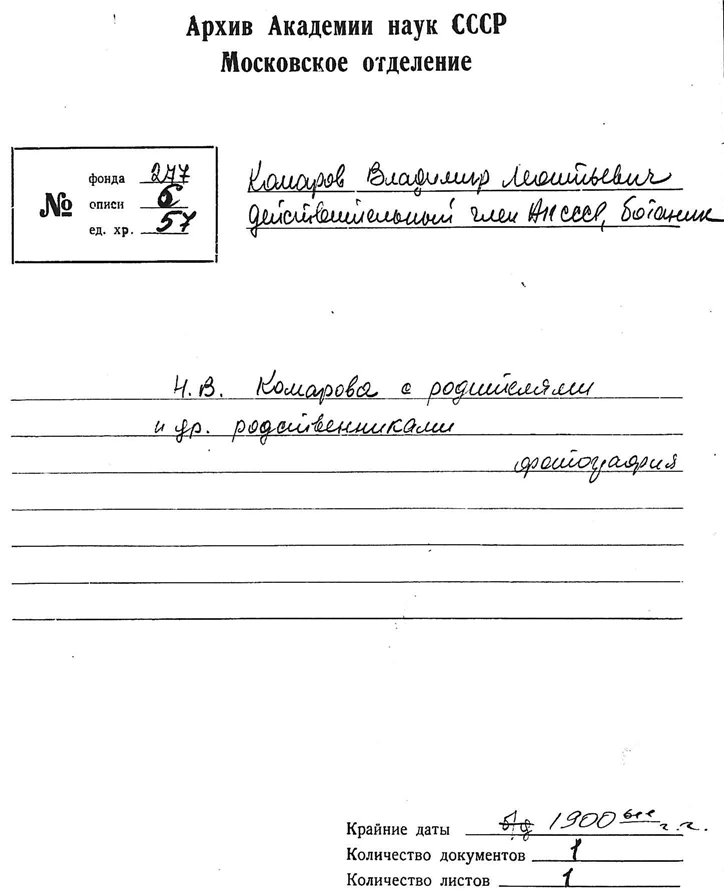 Архив Академии наук СССР
Московское отделение
№
фонда 277
описи 6
ед. хр. 57
Комаров Владимир Леонтьевич
действительный член АН СССР, ботаник
Н.В. Комарова с родителями
и др. родственниками
фотография
Крайние даты б/д 1900ые г.г.
Количество документов 1
Количество листов 1